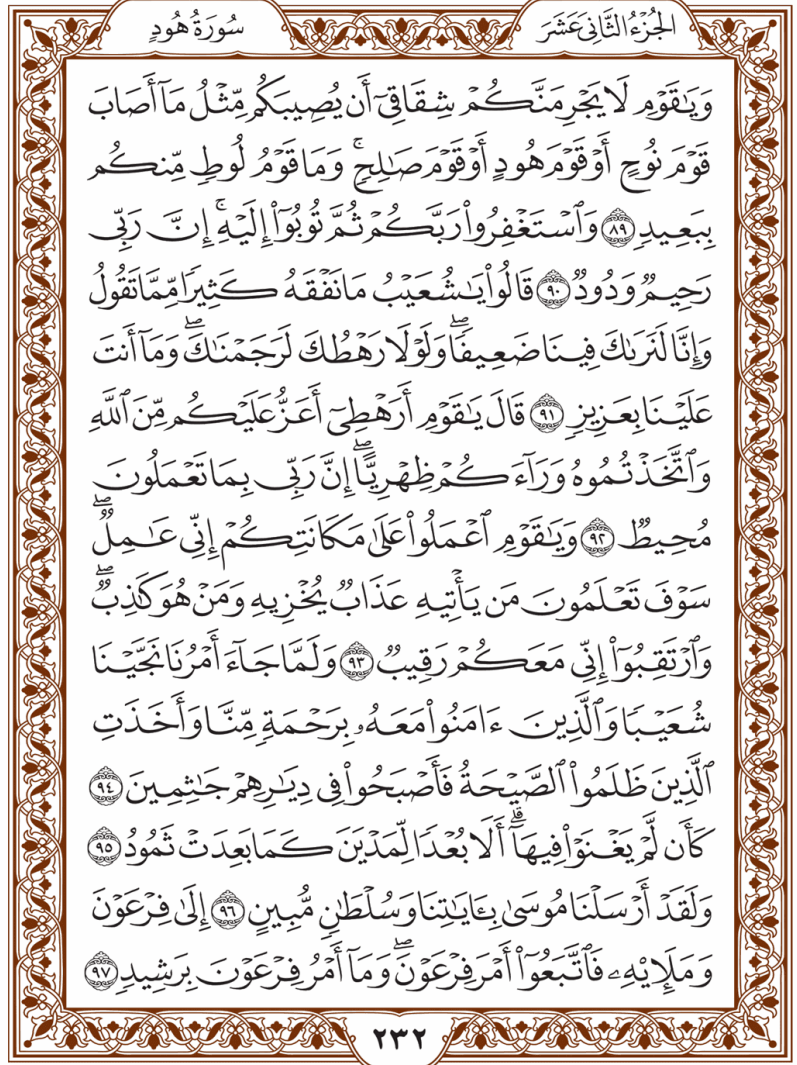 الجُزْءُ الثَّانِي عَشَرَ
سُورَةُ هُودٍ
وَيَٰقَوْمِ لَا يَجْرِمَنَّكُمْ شِقَاقِيٓ أَن يُصِيبَكُم مِّثْلُ مَآ أَصَابَ
قَوْمَ نُوحٍ أَوْ قَوْمَ هُودٍ أَوْ قَوْمَ صَٰلِحٍۚ وَمَا قَوْمُ لُوطٍ مِّنكُم
بِبَعِيدٍ ٨٩ وَٱسْتَغْفِرُوا۟ رَبَّكُمْ ثُمَّ تُوبُوٓا۟ إِلَيْهِۚ إِنَّ رَبِّى
رَحِيمٌ وَدُودٌ ٩٠ قَالُوا۟ يَٰشُعَيْبُ مَا نَفْقَهُ كَثِيرًا مِّمَّا تَقُولُ
وَإِنَّا لَنَرَىٰكَ فِينَا ضَعِيفًاۖ وَلَوْلَا رَهْطُكَ لَرَجَمْنَٰكَۖ وَمَآ أَنتَ
عَلَيْنَا بِعَزِيزٍ ٩١ قَالَ يَٰقَوْمِ أَرَهْطِىٓ أَعَزُّ عَلَيْكُم مِّنَ ٱللَّهِ
وَٱتَّخَذْتُمُوهُ وَرَآءَكُمْ ظِهْرِيًّاۖ إِنَّ رَبِّى بِمَا تَعْمَلُونَ
مُحِيطٌ ٩٢ وَيَٰقَوْمِ ٱعْمَلُوا۟ عَلَىٰ مَكَانَتِكُمْ إِنِّى عَٰمِلٌۖ
سَوْفَ تَعْلَمُونَ مَن يَأْتِيهِ عَذَابٌ يُخْزِيهِ وَمَنْ هُوَ كَٰذِبٌۖ
وَٱرْتَقِبُوٓا۟ إِنِّى مَعَكُمْ رَقِيبٌ ٩٣ وَلَمَّا جَآءَ أَمْرُنَا نَجَّيْنَا
شُعَيْبًا وَٱلَّذِينَ ءَامَنُوا۟ مَعَهُۥ بِرَحْمَةٍ مِّنَّا وَأَخَذَتِ
ٱلَّذِينَ ظَلَمُوا۟ ٱلصَّيْحَةُ فَأَصْبَحُوا۟ فِى دِيَٰرِهِمْ جَٰثِمِينَ ٩٤
كَأَن لَّمْ يَغْنَوْا۟ فِيهَآۗ أَلَا بُعْدًا لِّمَدْيَنَ كَمَا بَعِدَتْ ثَمُودُ ٩٥
وَلَقَدْ أَرْسَلْنَا مُوسَىٰ بِـَٔايَٰتِنَا وَسُلْطَٰنٍ مُّبِينٍ ٩٦ إِلَىٰ فِرْعَوْنَ
وَمَلَإِي۟هِۦ فَٱتَّبَعُوٓا۟ أَمْرَ فِرْعَوْنَۖ وَمَآ أَمْرُ فِرْعَوْنَ بِرَشِيدٍ ٩٧
٢٣٢